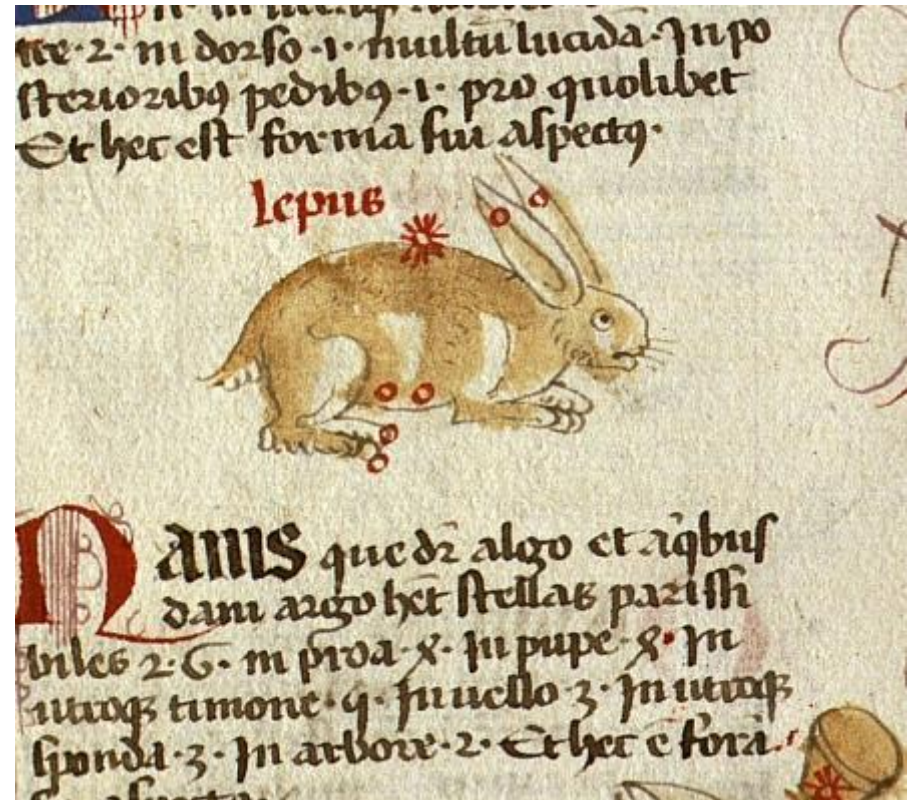 re · 2 · in dorso · 1 · multū lucida · In po
sterioribꝰ pedibꝰ · 1 · pro quolibet
Et hec est forma sui aspectꝰ ·
lepus
Nauis que dr̄ algo et a q̄busſ
dam argo hēt stellas
biles 2 · 6 · in proa · 8 · In pupe · 8 · In
utroqꝫ timone · 4 · In uello · 3 · In utroqꝫ
sponda · 3 · In arbore · 2 · Et hec ē forā